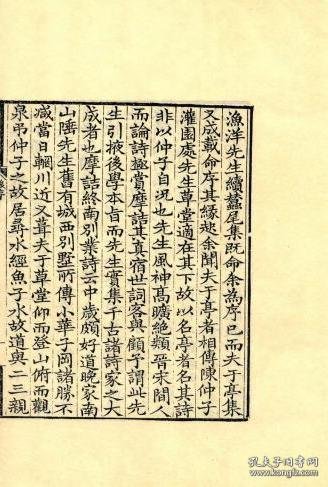 漁洋先生續蠶尾集既命余為序已而夫于亭集
又成載命序其緣起余聞夫于亭者相傳陳仲子
灌園處先生草堂適在其下故以名亭者名其詩
非以仲子自況也先生風神高曠絶類晉宋間人
而論詩極賞摩詰其真宿世詞客與顧予謂此先
生引掖後學本旨而先生實集千古諸詩家之大
成者也摩詰終南別業詩云中歲頗好道晚家南
山陲先生舊有城西別墅所傳小華子岡諸勝不
減當日輞川近又葺夫于草堂仰而登山俯而觀
泉弔仲子之故居尋水經魚子水故道與二三親
孔夫子旧书网